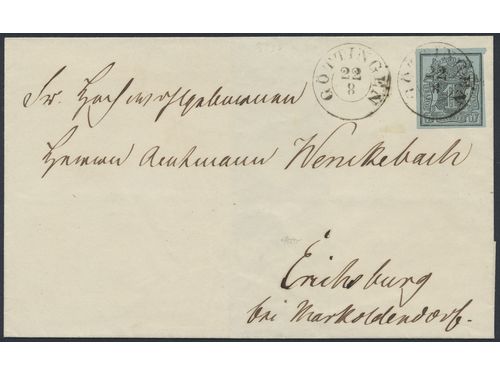 GÖTTINGEN
22
8
GÖTTINGEN
22
8
Sr. Hochwohlgeboren
Herrn Amtmann Wenckebach
Erichsburg
bei Markoldendorf.